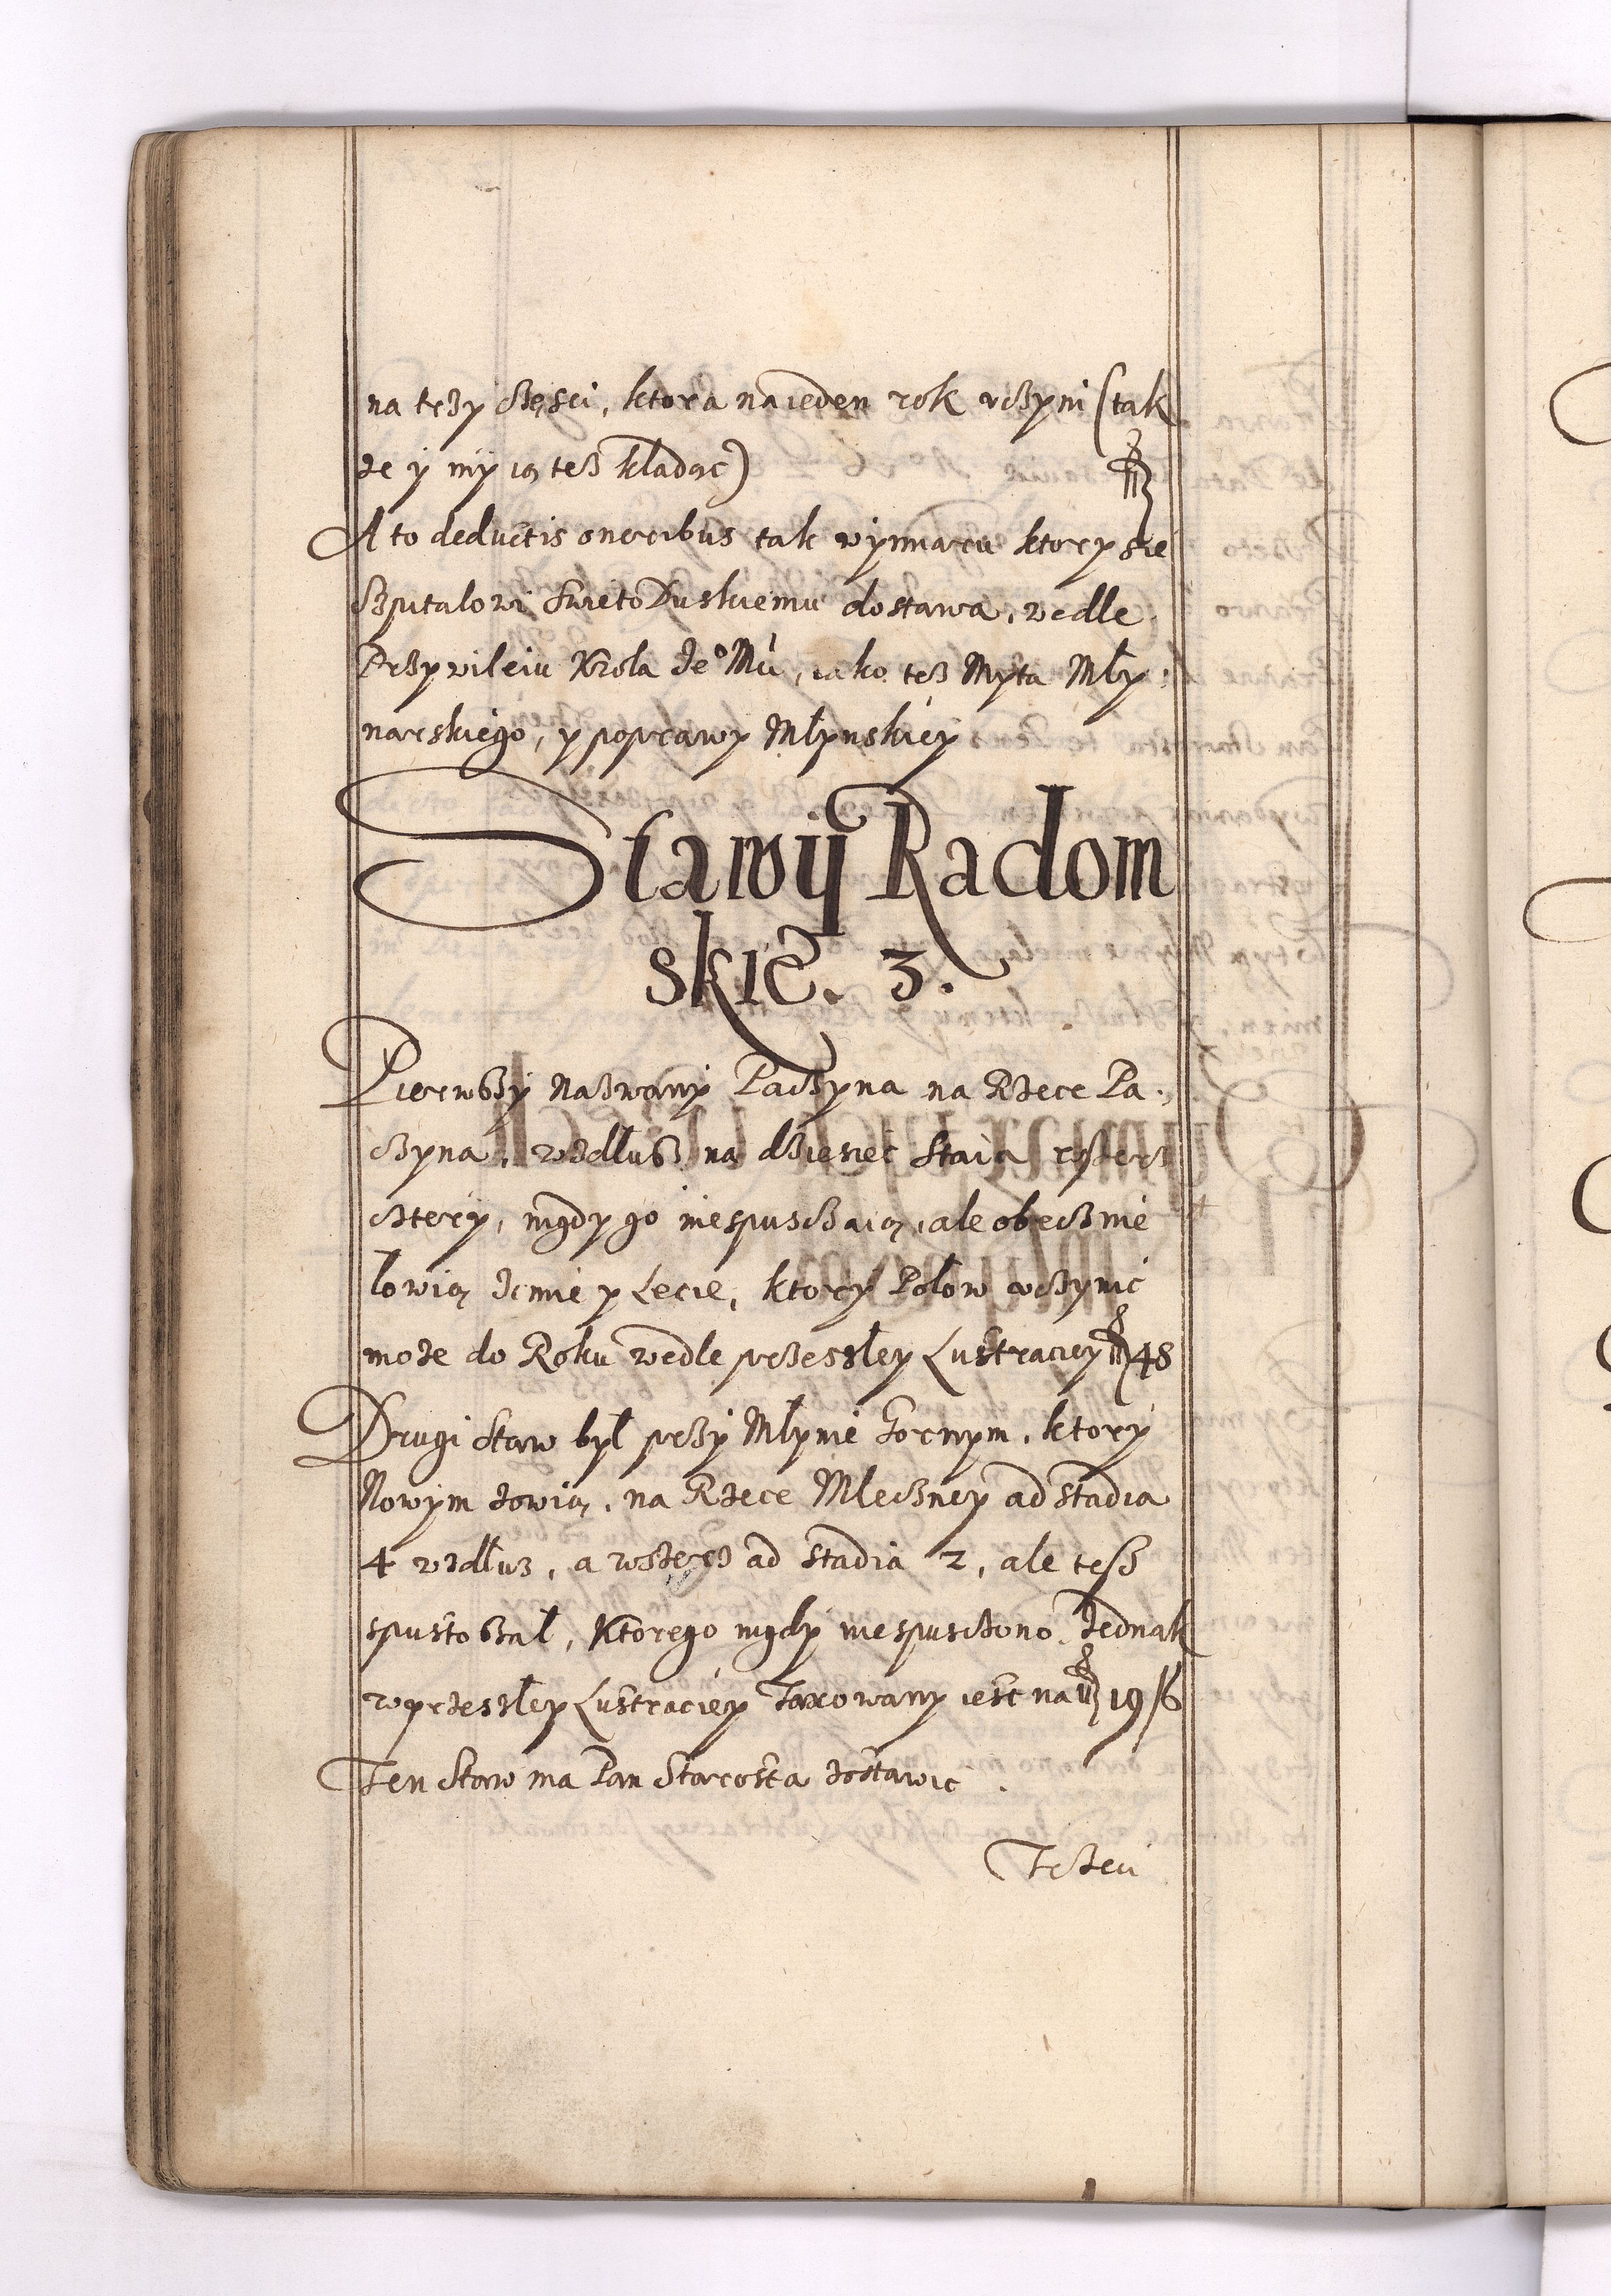 na trzy części, ktora na ieden rok vczyni (tak
że y my ią tesz kładąc)
A to deductis oneribus tak wymiaru ktory się
Szpitalowi SwiętoDuskiemu dostawa, wedle
Przywileiu Krola Jeº Mći, iako tesz Myta Mły:
narskiego, y poprawy Młynskiey
Stawÿ Radom
skie. 3.
Pierwszy Nazwany Paczyna na Rzece Pa:
czyna, wzdłusz na dziesięć Staia
cztery, nigdy go niespusczaią, ale obecznie
łowią Zimie y Lecie, ktory Połow vczynić
może do Roku wedle przeszłey Lustraciey 48
Drugi Staw był przy Młynie Gornym, ktory
Nowym zowią, na Rzece Mleczney ad stadia
4 wzdłuz, a wszerz ad stadia 2, ale tesz
spustoszał, Ktorego nigdy niespusczono. Jednak
w przeszłey Lustraciey Taxowany iest na 19/6
Ten Staw ma Pan Starosta zostawic
Trzeci